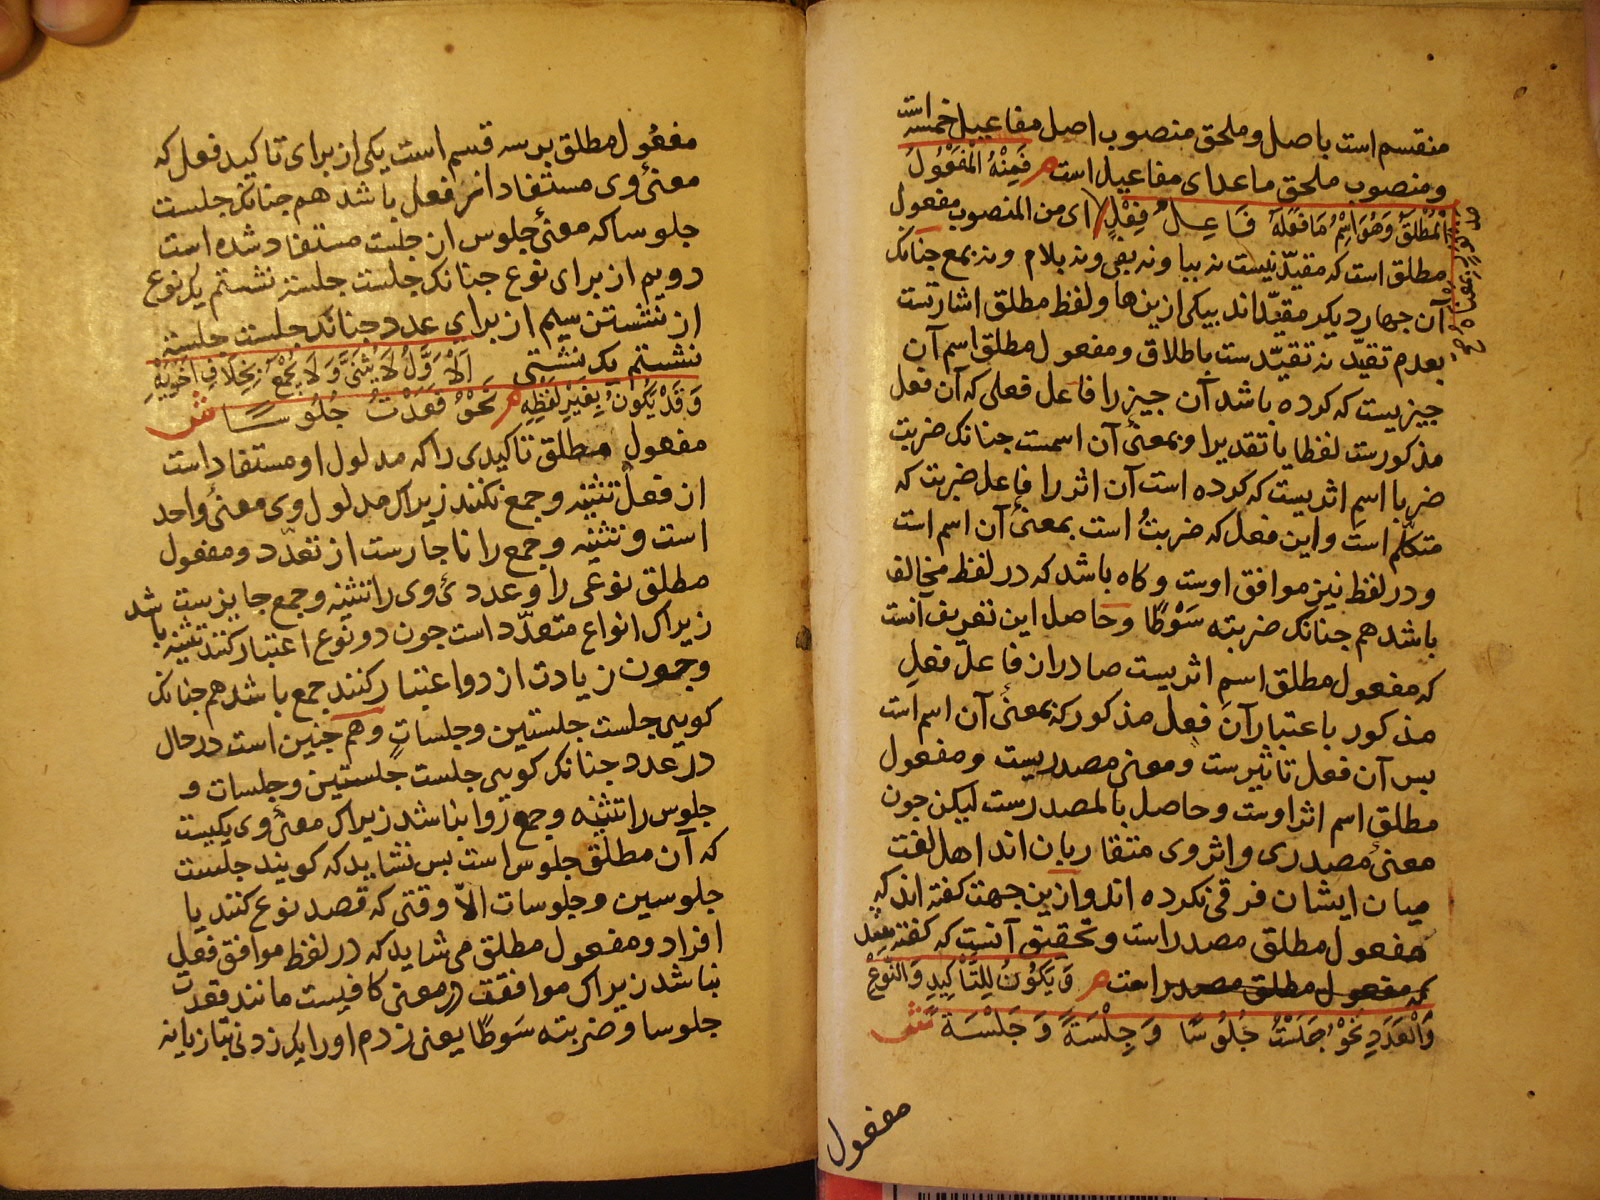 منقسم است باصل و ملحق منصوب اصل مفاعیل خمسه است
و منصوب ملحق ماعدای مفاعیل است م فَمِنْهُ الْمَفْعُولُ
الْمُطْلَقُ وَهُوَ اِسْمُ مَا فَعَلَهُ فَاعِلُ فِعْلٍ ای من المنصوب مفعول
مذکورٍ بمعناه
مطلق است که مقیّد نیست نه ببا و نه بفی و نه بلام و نه بمع جنانک
آن جهار دیکر مقیّداند بیکی ازینها و لفظ مطلق اشارتست
بعدم تقیّد نه تقیّدست باطلاق و مفعول مطلق اسم آن
جیزیست که کرده باشد آن جیز را فاعل فعلی که آن فعل
مذکورست لفظا یا تقدیرا و بمعنئ آن اسمست جنانک ضربت
ضربا اسم اثریست که کرده است آن اثر را فاعل ضربت که
متکلّم است و این فعل که ضربتُ است بمعنئ آن اسم است
و در لفظ نیز موافق اوست و کاه باشد که در لفظ مخالف
باشد هم جنانک ضربته سَوْطًا و حاصل این تعریف آنست
که مفعول مطلق اسمِ اثریست صادر از فاعل فعلِ
مذکور باعتبار آن فعل مذکور که بمعنئ آن اسم است
بس آن فعل تاثیرست و معنی مصدریست و مفعول
مطلق اسم اثر اوست و حاصل بالمصدرست لیکن جون
معنئ مصدری و اثر وی متقاربان اند اهل لغت
میان ایشان فرقی نکرده اند و ازین جهت کفته اند که
مفعول مطلق مصدراست و تحقیق آنست که کفته شد
که مفعول مطلق مصدر است م وَیَکُونُ لِلتَّاْکِیدِ وَالنَّوْعِ
وَالْعَدَدِ نَحْوُ جَلَسْتُ جُلُوسًا وَجِلْسَةً وَجَلْسَةً ش
مفعول
مفعول مطلق بر سه قسم است یکی از برای تاکید فعل که
معنئ وی مستفاد از فعل باشد هم جنانک جلست
جلوسا که معنئ جلوس از جلست مستفاد شده است
دویم از برای نوع جنانک جلست جلسة نشستم یک نوع
از نشستن سیم از برای عدد جنانک جلست جلسة
نشستم یک نشستی اَلْاَوَّلُ لَا یُثَنَّی وَلَا یُجْمَعُ بِخِلَافِ اَخَوَیْهِ
وَقَدْ یَکُونُ بِغَیْرِ لَفْظِهِ م نَحْوُ قَعَدْتُ جُلُوسًا ش
مفعول مطلق تاکیدی را که مدلول او مستفاد است
از فعل تثنیه و جمع نکنند زیراک مدلول وی معنئ واحد
است و تثنیه و جمع را ناجارست از تعدّد و مفعول
مطلق نوعی را و عددئ وی را تثنیه و جمع جایزست
زیراک انواع متعدّد است جون دو نوع اعتبار کنند تثنیه باشد
و جمون زیادت از دو اعتبار کنند جمع باشد هم جنانک
کویی جلست جلستین و جلساتٍ و هم جنین است در حال
در عدد جنانک کویی جلست جلستین و جلسات و
جلوس را تثنیه و جمع روا نباشد زیراک معنئ وی یکیست
که آن مطلق جلوس است بس نشاید که کویند جلست
جلوسین و جلوسات الّا وقتی که قصد نوع کنند یا
افراد و مفعول مطلق می شاید که در لفظ موافق فعل
نباشد زیراک موافقت در معنی کافیست مانند قعدت
جلوسا و ضربته سَوطًا یعنی زدم او را یک زدنی بتازیانه